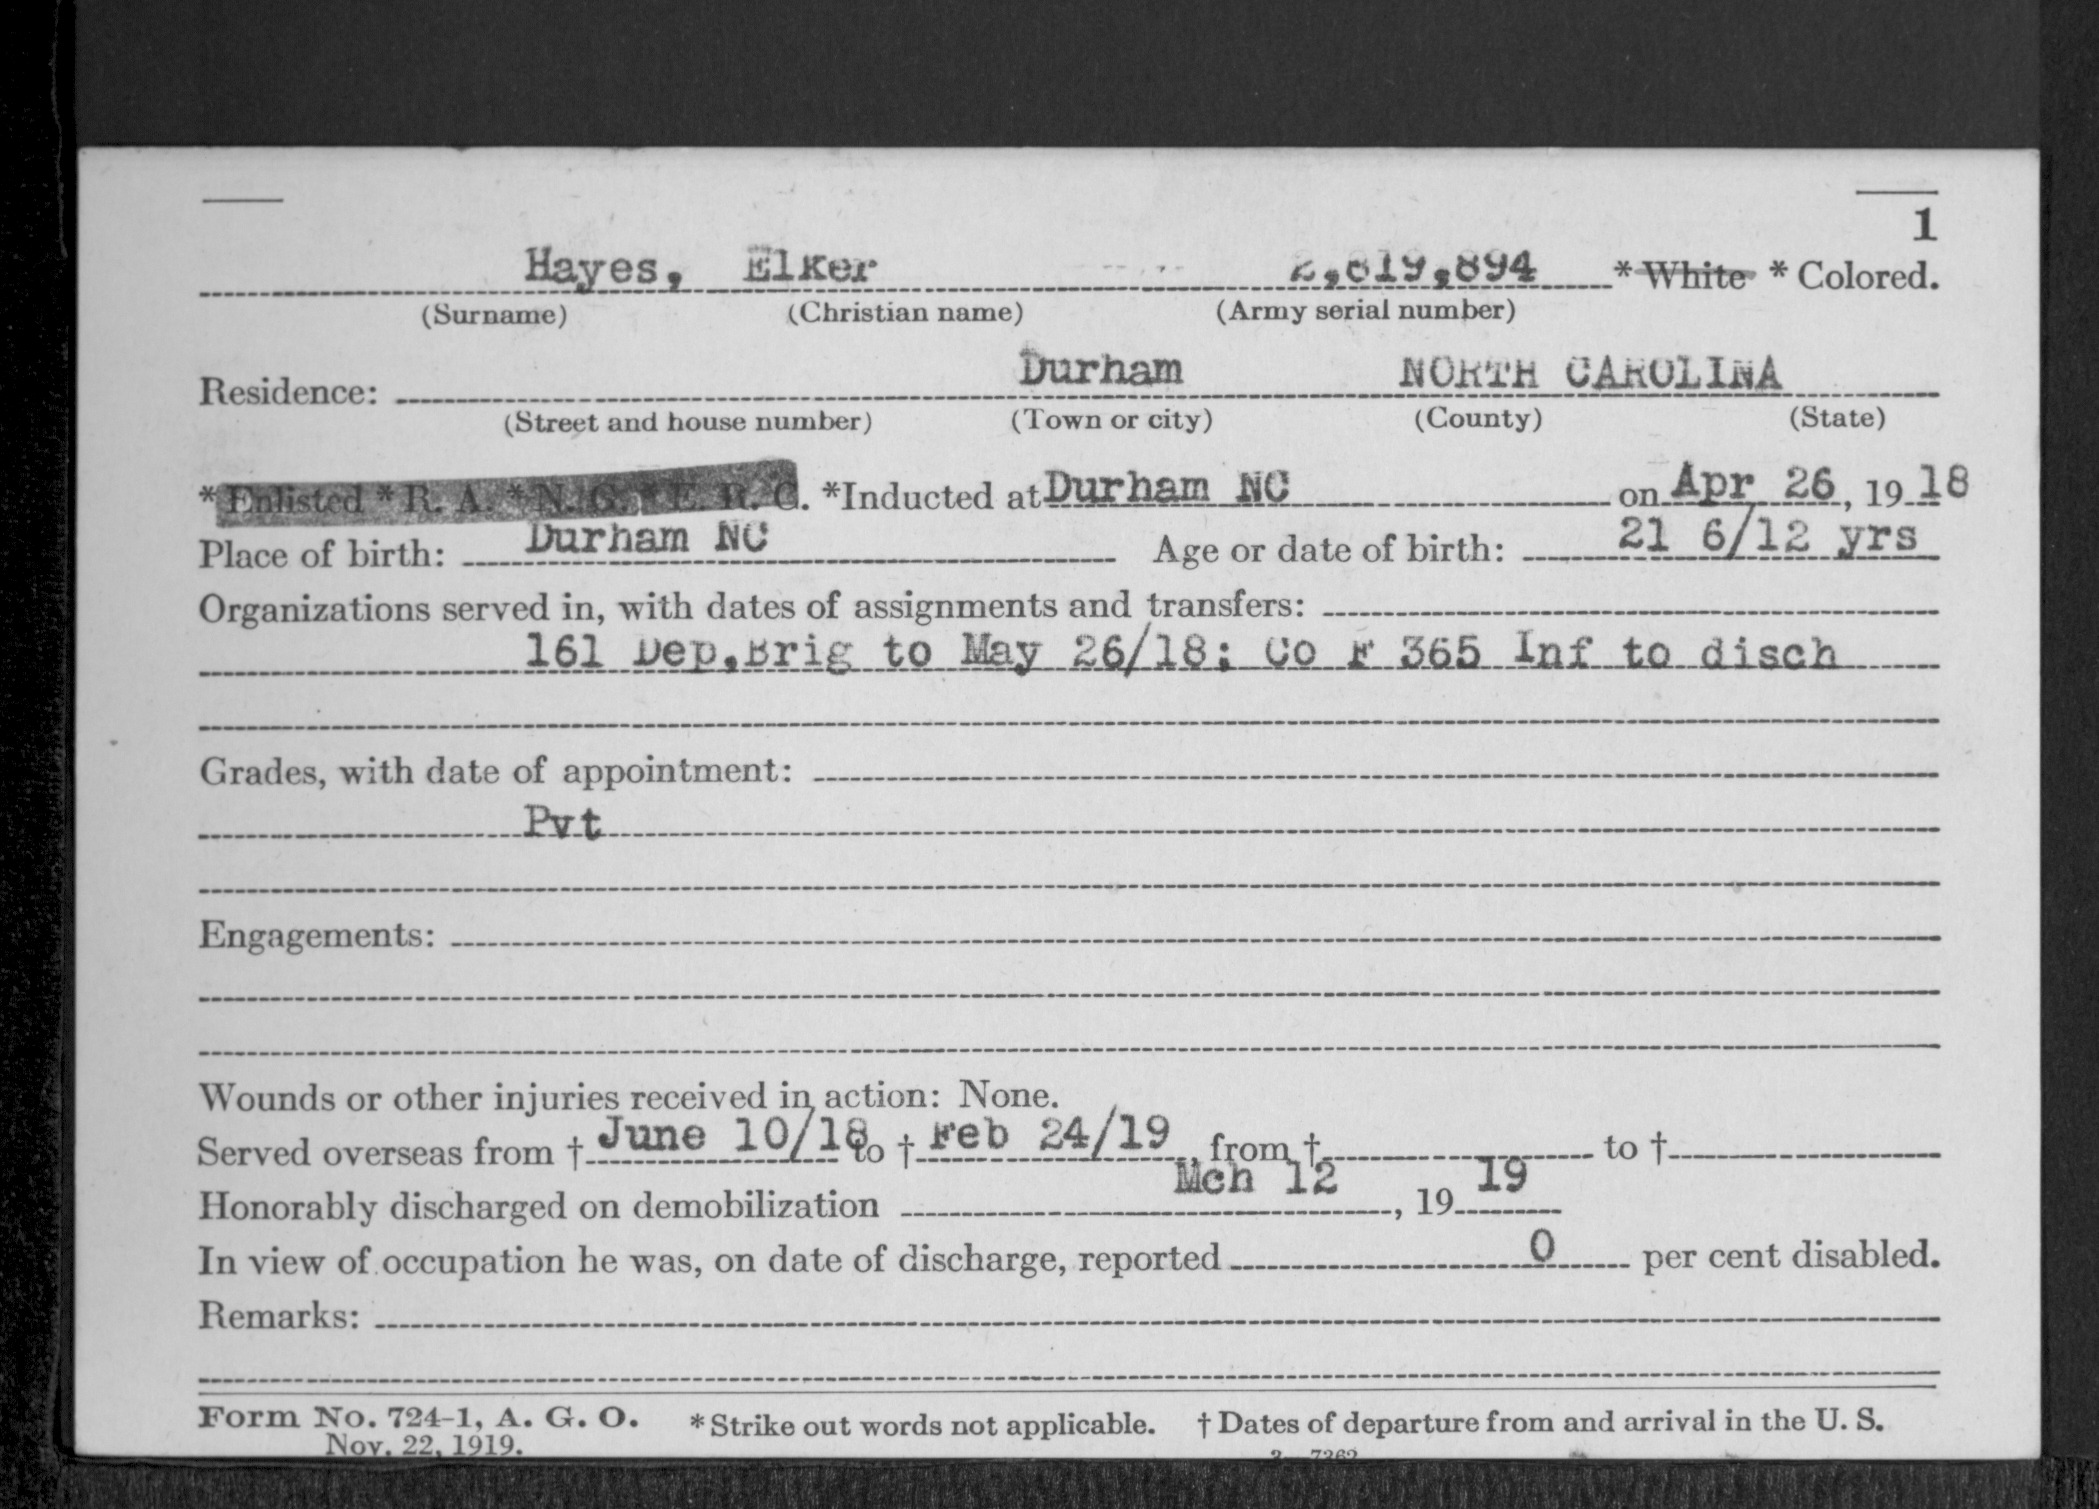 1
Hayes, Elker 2,819,894 *White *Colored.
(Surname) (Christian name) (Army serial number)
Residence: Durham NORTH CAROLINA
(Street and house number) (Town or city) (County) (State)
*Enlisted *R. A. *N. G. *E. R. C. *Inducted at Durham NC on Apr 26, 19 18
Place of birth: Durham NC Age or date of birth: 21 6/12 yrs
Organizations served in, with dates of assignments and transfers:
161 Dep.Brig to May 26/18; Co F 365 Inf to disch
Grades, with date of appointment:
Pvt
Engagements:
Wounds or other injuries received in action: None.
Served overseas from † June 10/18 to † Feb 24/19, from † to †
Honorably discharged on demobilization Mch 12, 19 19
In view of occupation he was, on date of discharge, reported 0 per cent disabled.
Remarks:
Form No. 724-1, A. G. O. *Strike out words not applicable. †Dates of departure from and arrival in the U. S.
Nov. 22, 1919. 3—7362